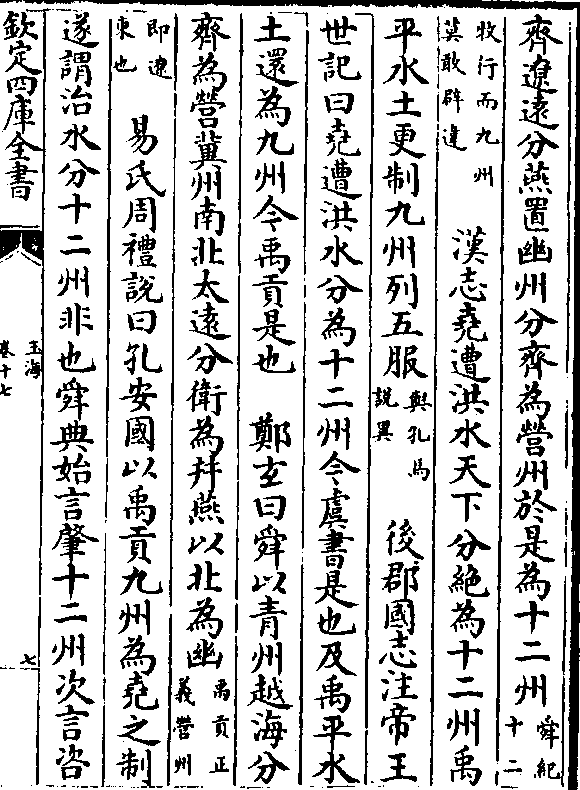 齊遼遠分燕置幽州分齊為營州於是為十二州舜紀十二
牧行而九州莫敢辟違　漢志堯遭洪水天下分絶為十二州禹
平水土更制九州列五服與孔馬説異　後郡國志注帝王
世記曰堯遭洪水分為十二州今虞書是也及禹平水
土還為九州今禹貢是也　鄭玄曰舜以青州越海分
齊為營冀州南北太遠分衛為并燕以北為幽禹貢正義營州
即遼東也　易氏周禮說曰孔安國以禹貢九州為堯之制
遂謂治水分十二州非也舜典始言肇十二州次言咨
欽定四庫全書
玉海
卷十七
七